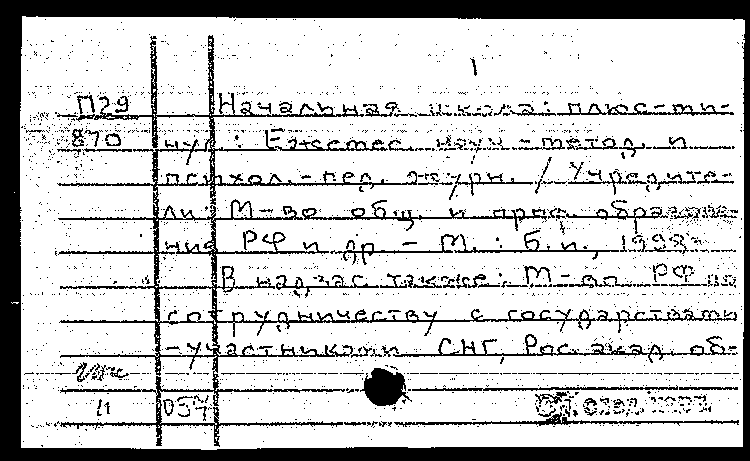 1
П29 Начальная школа: плюс-ми-
870 нус : Ежемес. науч.-метод. и
психол.-пед. журн. / Учредите-
ли: М-во общ. и проф. образова-
ния РФ и др. - М. : Б.и., 1998-
В надзаг также: М-во РФ по
сотрудничеству с государствами
-участниками СНГ, Рос. акад. об-
И 057 См. след. карт.